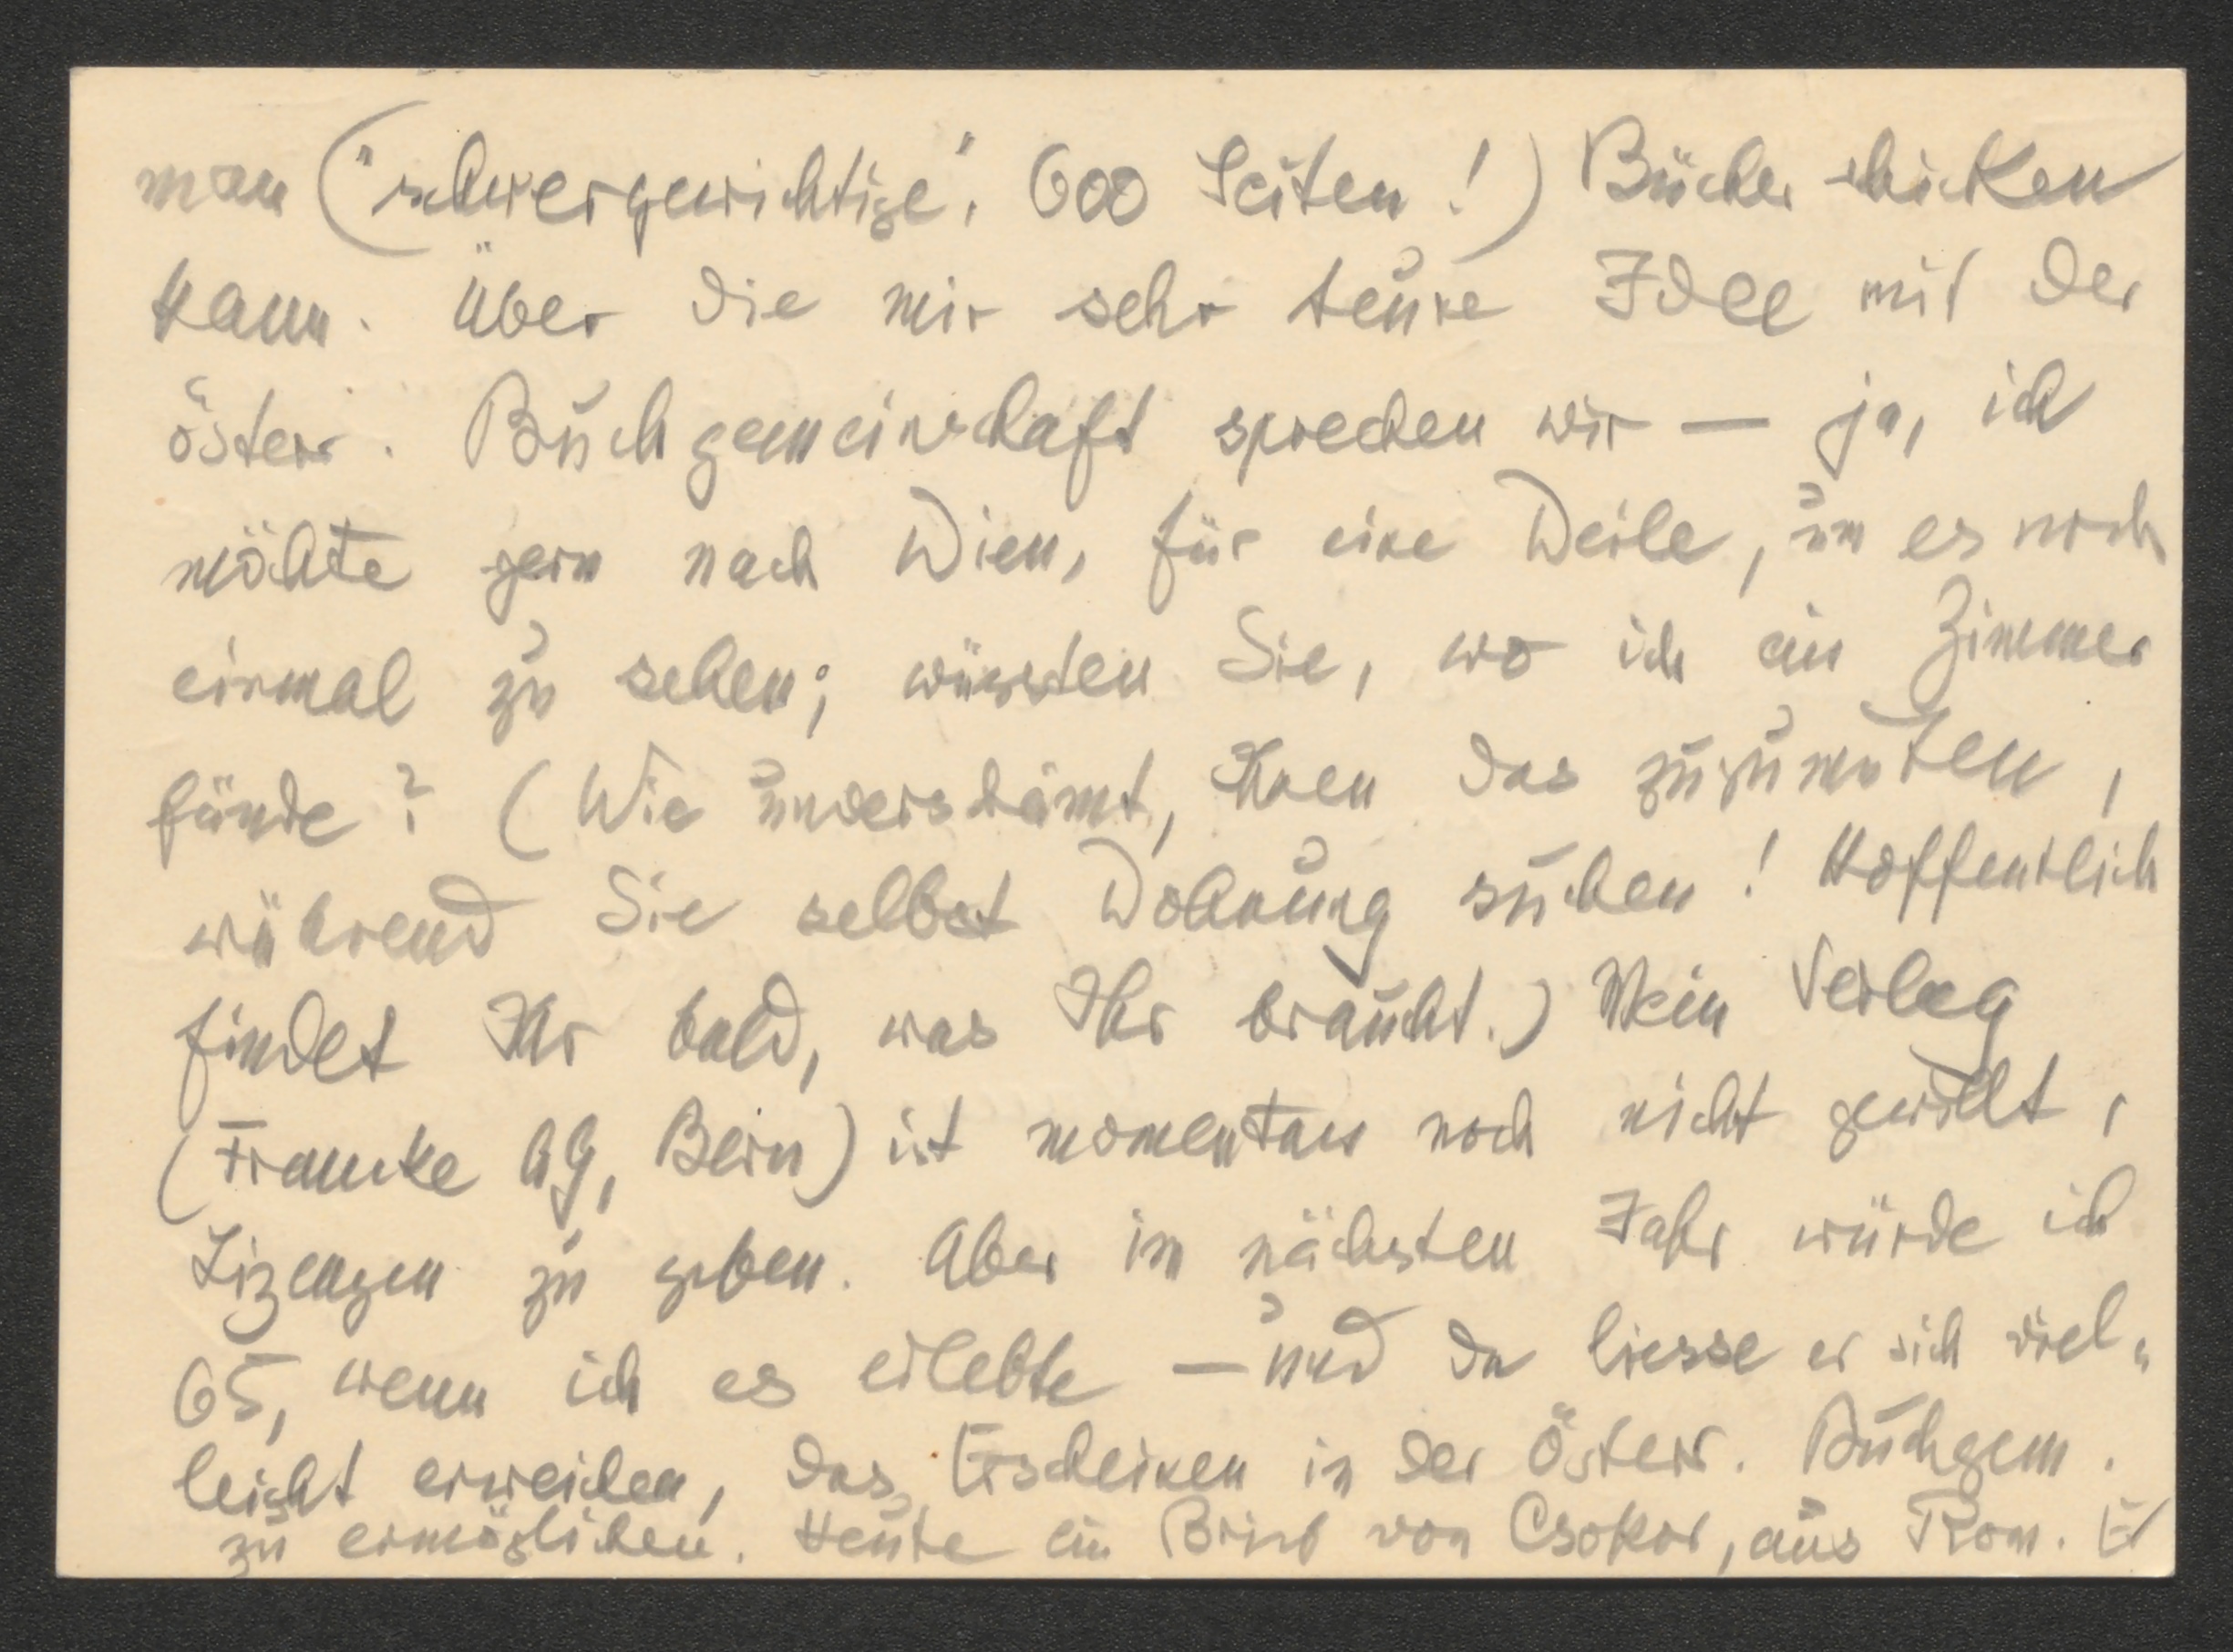 man ("schwergewichtige", 600 Seiten!) Bücher schicken
kann. Über die mir sehr teure Idee mit der
österr. Buchgemeinschaft sprechen wir — ja, ich
möchte gern nach Wien, für eine Weile, um es noch
einmal zu sehen; wüssten Sie, wo ich ein Zimmer
fände? (Wie unverschämt, Ihnen das zuzumuten,
während Sie selbst Wohnung suchen! Hoffentlich
findet Ihr bald, was Ihr braucht.) Mein Verlag
(Francke AG, Bern) ist momentan noch nicht gewillt,
Lizenzen zu geben. Aber im nächsten Jahr würde ich
65, wenn ich es erlebte — und da liesse er sich viel-
leicht erweichen, das Erscheinen in der Österr. Buchgem.
zu ermöglichen. Heute ein Brief von Csokor, aus Rom. Er